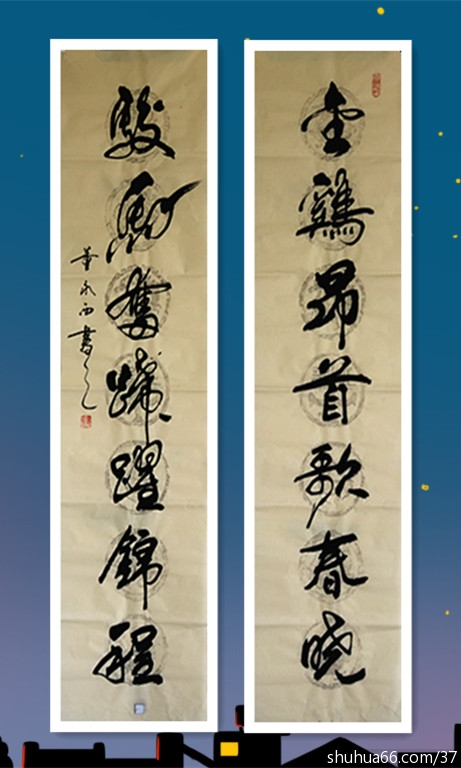 金鷄昂首歌春曉
駿馬奮蹄躍錦程
shuhua66.com/37